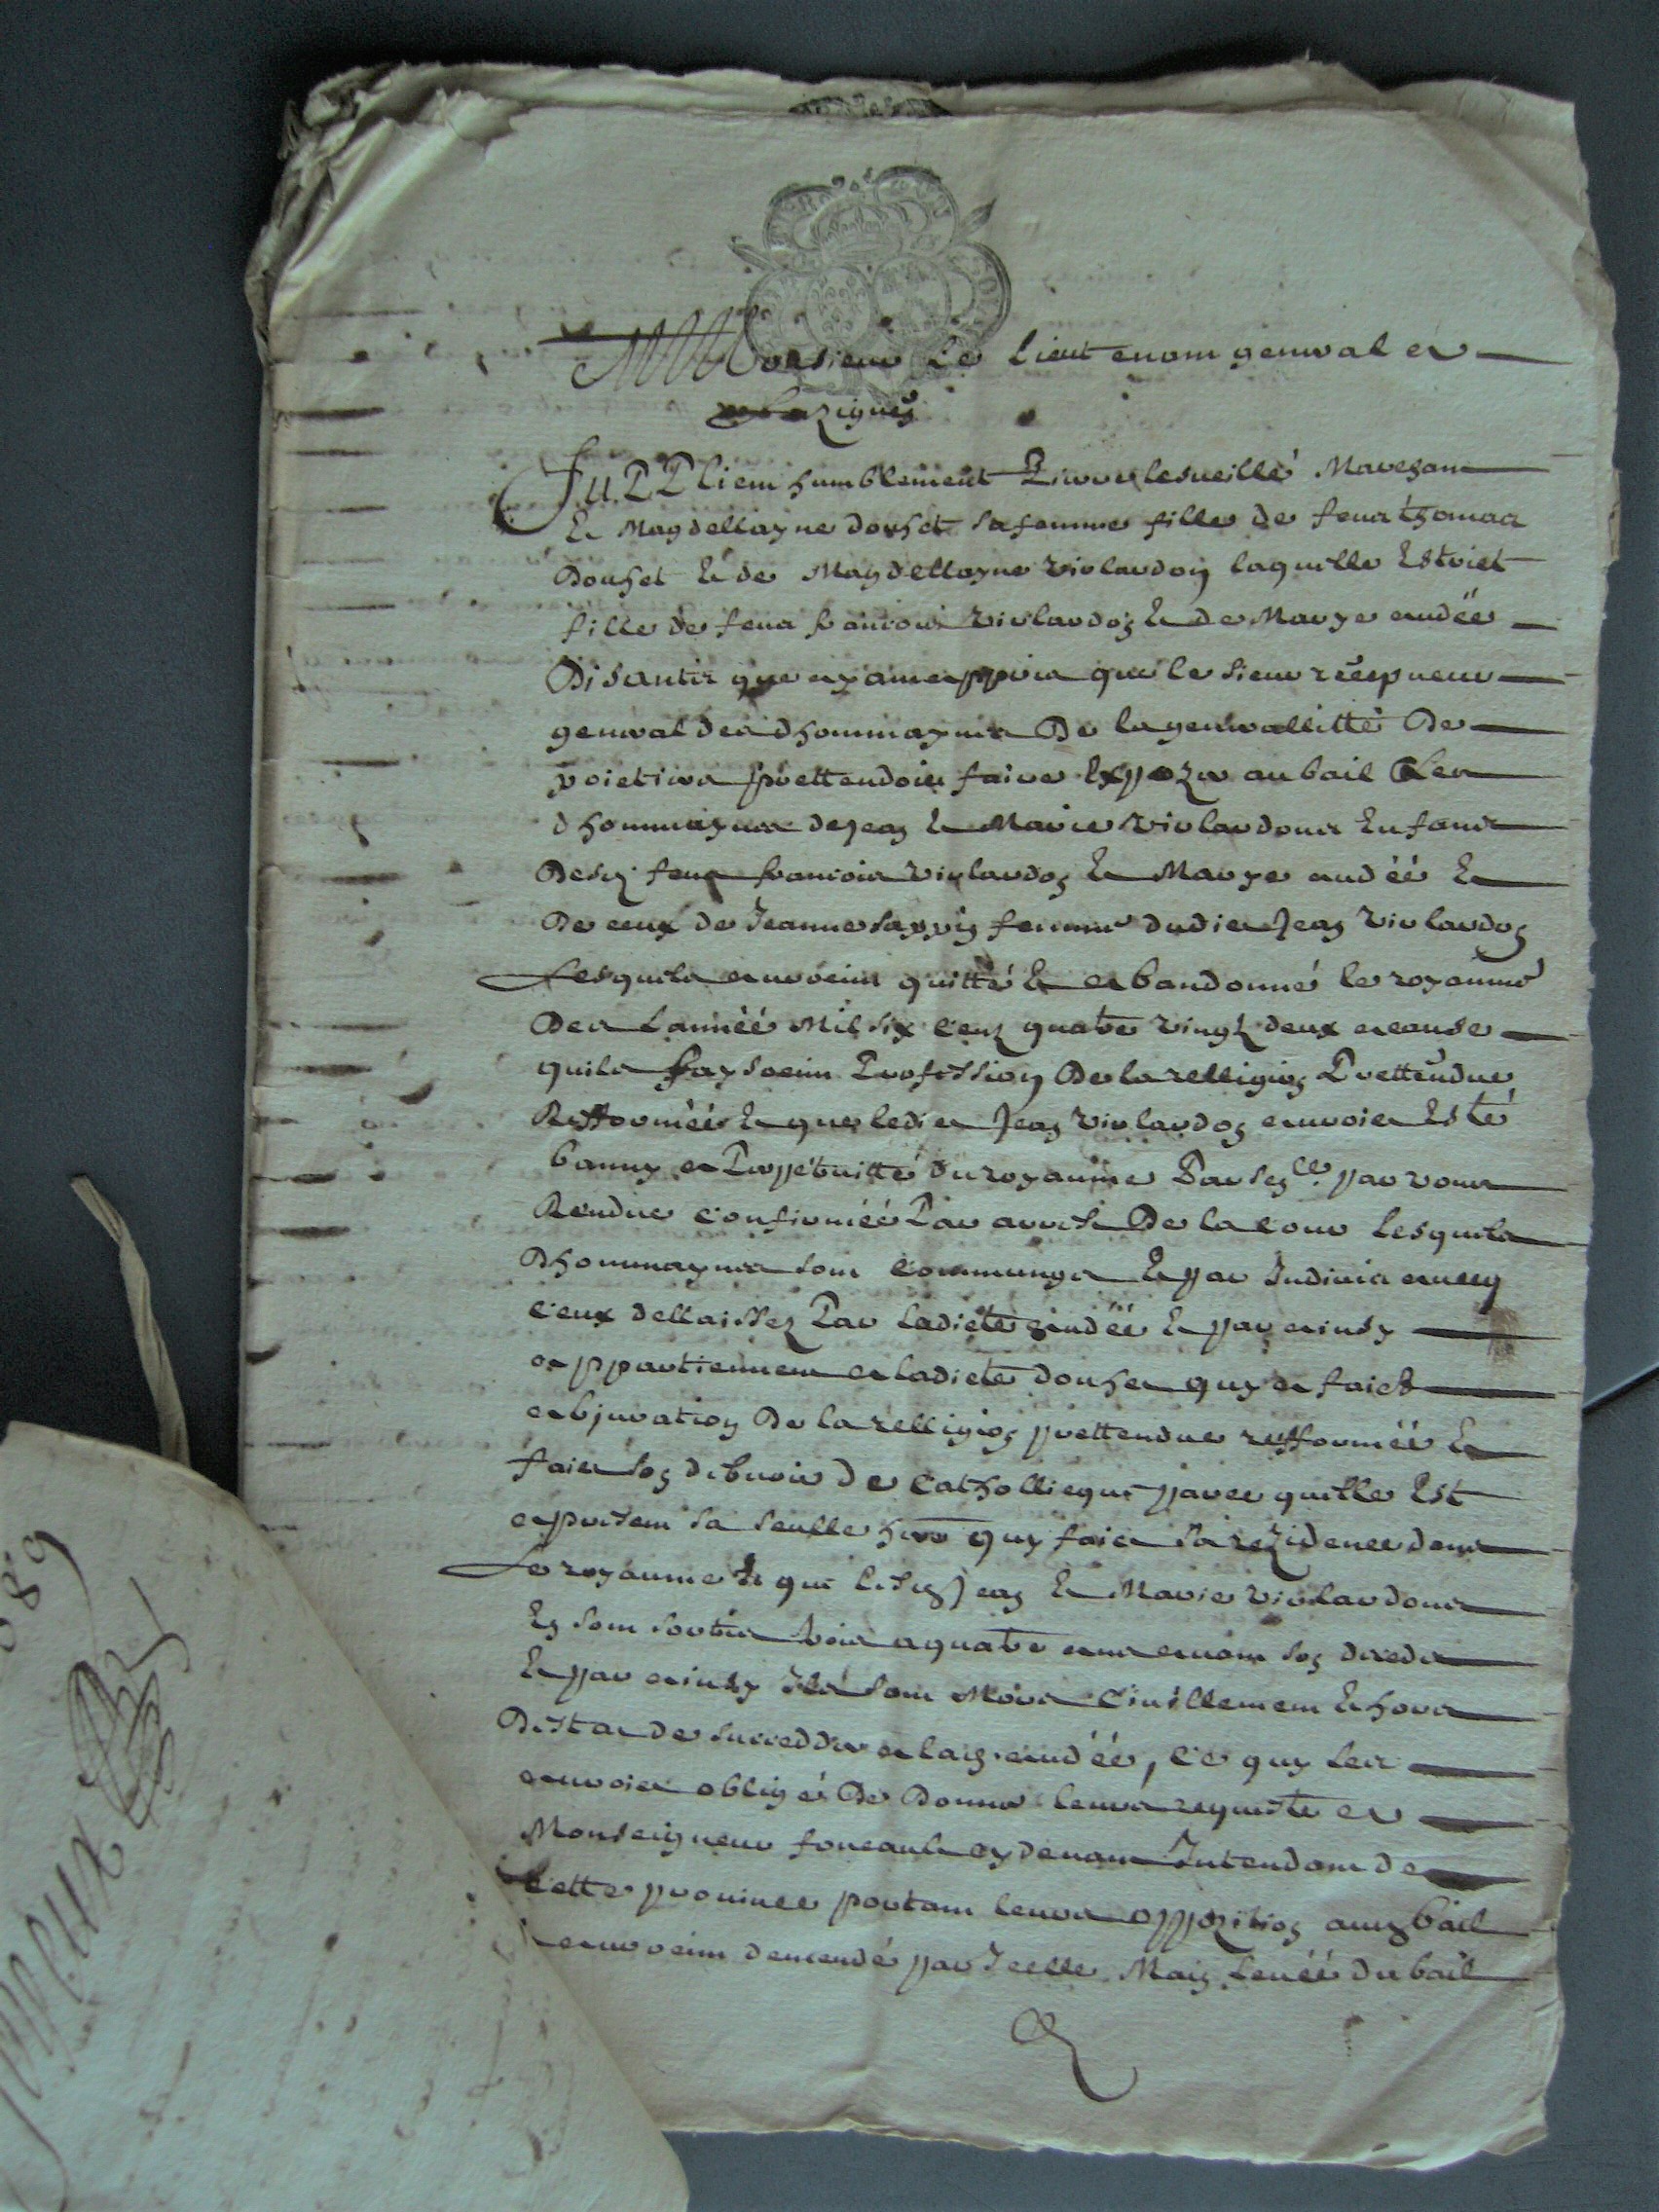 Monsieur Le Lieutenant general a
Supplient humblement Pierre Lesueillé Marchant
Et Magdellayne douhet sa femme fille de feux thomas
Douhet Et de Magdellayne Virlaudon laquelle Estoiet
fille de feux francois Virlaudon Et de Marye audéé
Disants que ayant appris que le sieur
general des dhommaynes De la generallitté De
poietiers prettendoit faire Expozer au bail Les
dhommaynes de Jean Et Marie Virlaudons Enfans
Desd. feux francois Virlaudon Et Marye audéé Et
De ceux de Jeanne femme dudict Jean Virlaudon
Lesquels auroient quitté Et abandonné le royaume
Des Lannéé Mil six cens quatre vingt deux a cause
quils faysoient Profession De la relligion Prettendue
Refforméé Et que ledict Jean Virlaudon auroit Esté
banny a Perpétuitté du royaume Par sence par vous
Rendue confirméé Par arrest De la cour Lesquels
Dhommaynes sont communs Et par Indivis avecq
ceux dellaissez Par ladicte audéé Et par ainsy
appartiennent a ladicte douhet quy a faict
abjuration De la relligion prettendue refforméé Et
faict son debvoir de Cathollieque parce quelle Est
apresent sa seulle here quy faict sa rezidence dans
Le royaume Et que lesd. Jean Et Marie Virlaudons
En sont sortis trois a quatre ans avant son deceds
Et par ainsy Ils sont Morts Civillement Et hors
Destat de succedder a lad. audéé, ce quy les
auroit obligés De Donner leurs requeste a
Monseigneur foucault cy devant Intendant de
Cette province portant leurs oppozition aux bail
auroient demendé par Icelle Main Levéé du bail